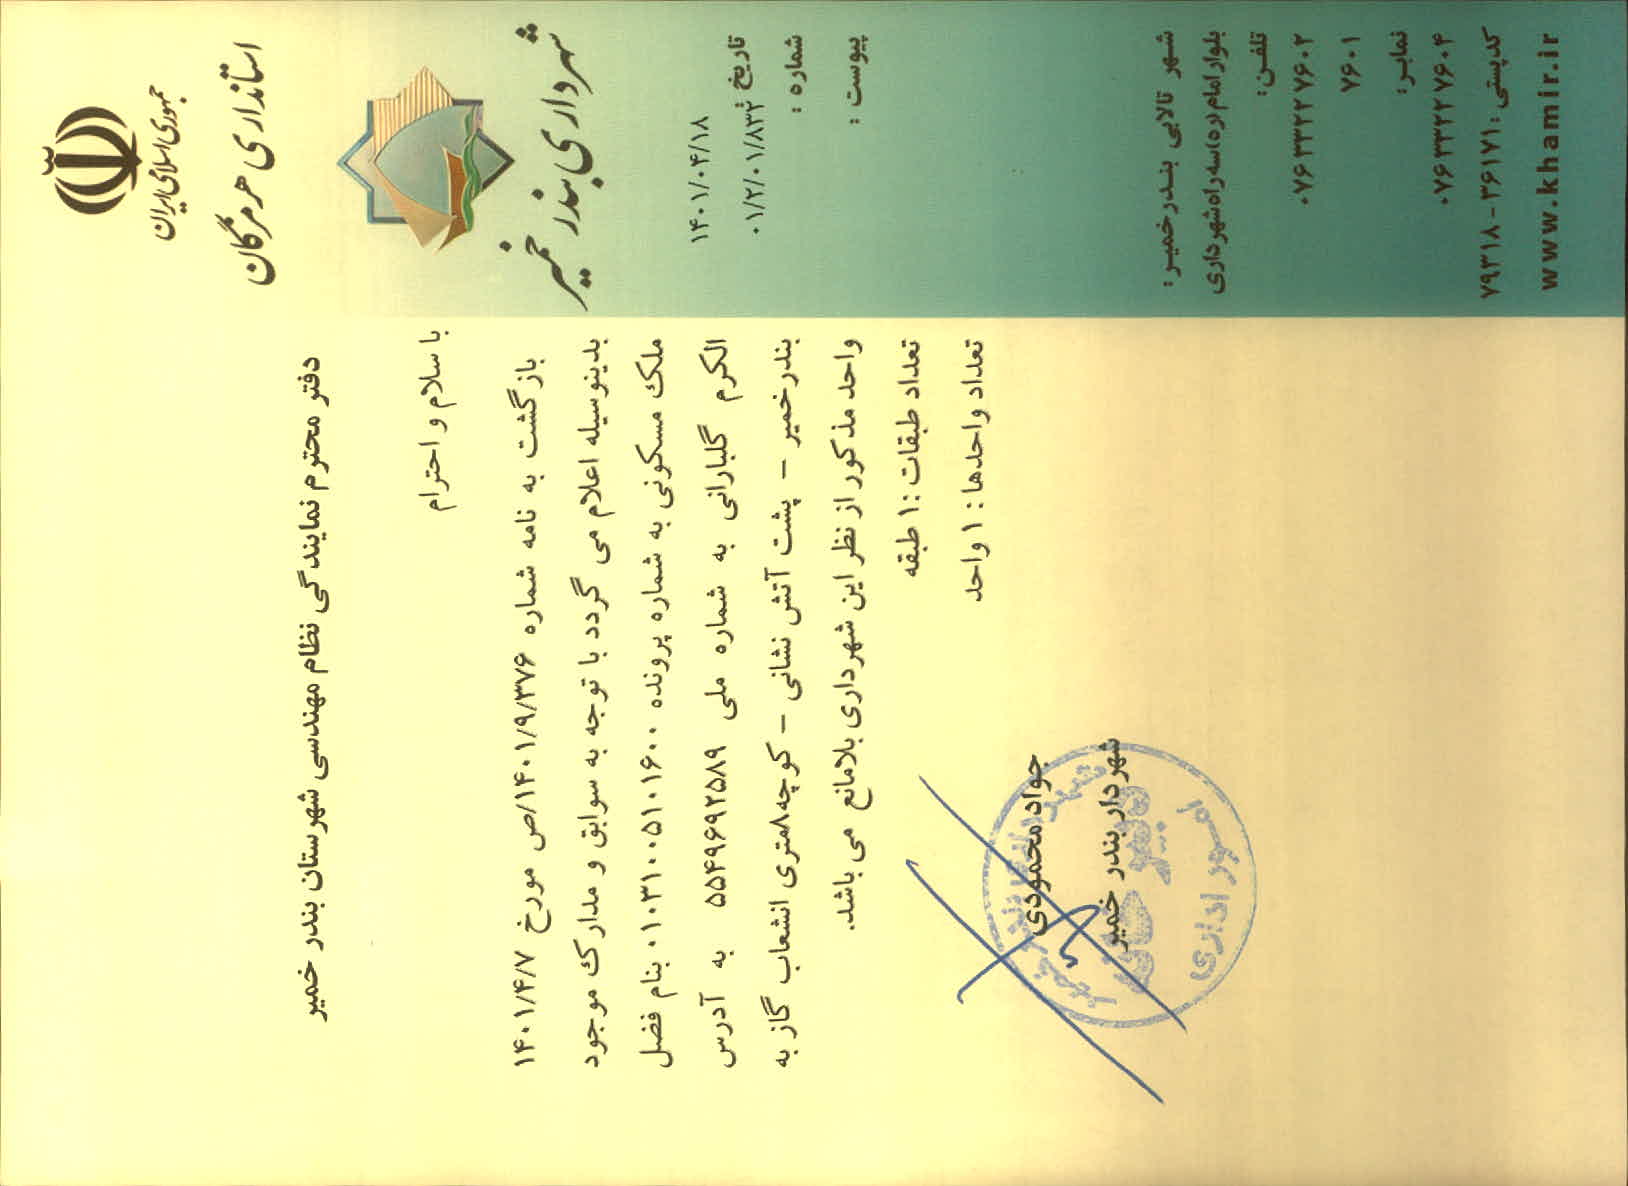 جمهوری اسلامی ایران
استانداری هرمزگان
شهرداری بندر خمیر
۱۴۰۱/۰۴/۱۸
تاریخ :
۰۱/۲/۰۱/۸۳۲
شماره :
پیوست :
دفتر محترم نمایندگی نظام مهندسی شهرستان بندر خمیر
با سلام و احترام
بازگشت به نامه شماره ۱۴۰۱/۹/۳۷۶/ص مورخ ۱۴۰۱/۴/۷
بدینوسیله اعلام می گردد با توجه به سوابق و مدارک موجود
ملک مسکونی به شماره پرونده ۰۱۰۳۱۰۰۵۱۰۱۶۰۰ بنام فضل
الکرم گلبارانی به شماره ملی ۵۵۴۹۶۹۲۵۸۹ به آدرس
بندرخمیر - پشت آتش نشانی - کوچه۸متری انشعاب گاز به
واحد مذکور از نظر این شهرداری بلامانع می باشد.
تعداد طبقات :۱ طبقه
تعداد واحدها : ۱ واحد
جواد محمودی
شهردار بندر خمیر
امور اداری
شهر تالابی بندرخمیر:
بلوار امام(ره)سه راه شهرداری
تلفن:
۰۷۶۳۳۲۲۷۶۰۲
۷۶۰۱
نمابر:
۰۷۶۳۳۲۲۷۶۰۴
کدپستی: ۳۶۱۷۱-۷۹۳۱۸
www.khamir.ir